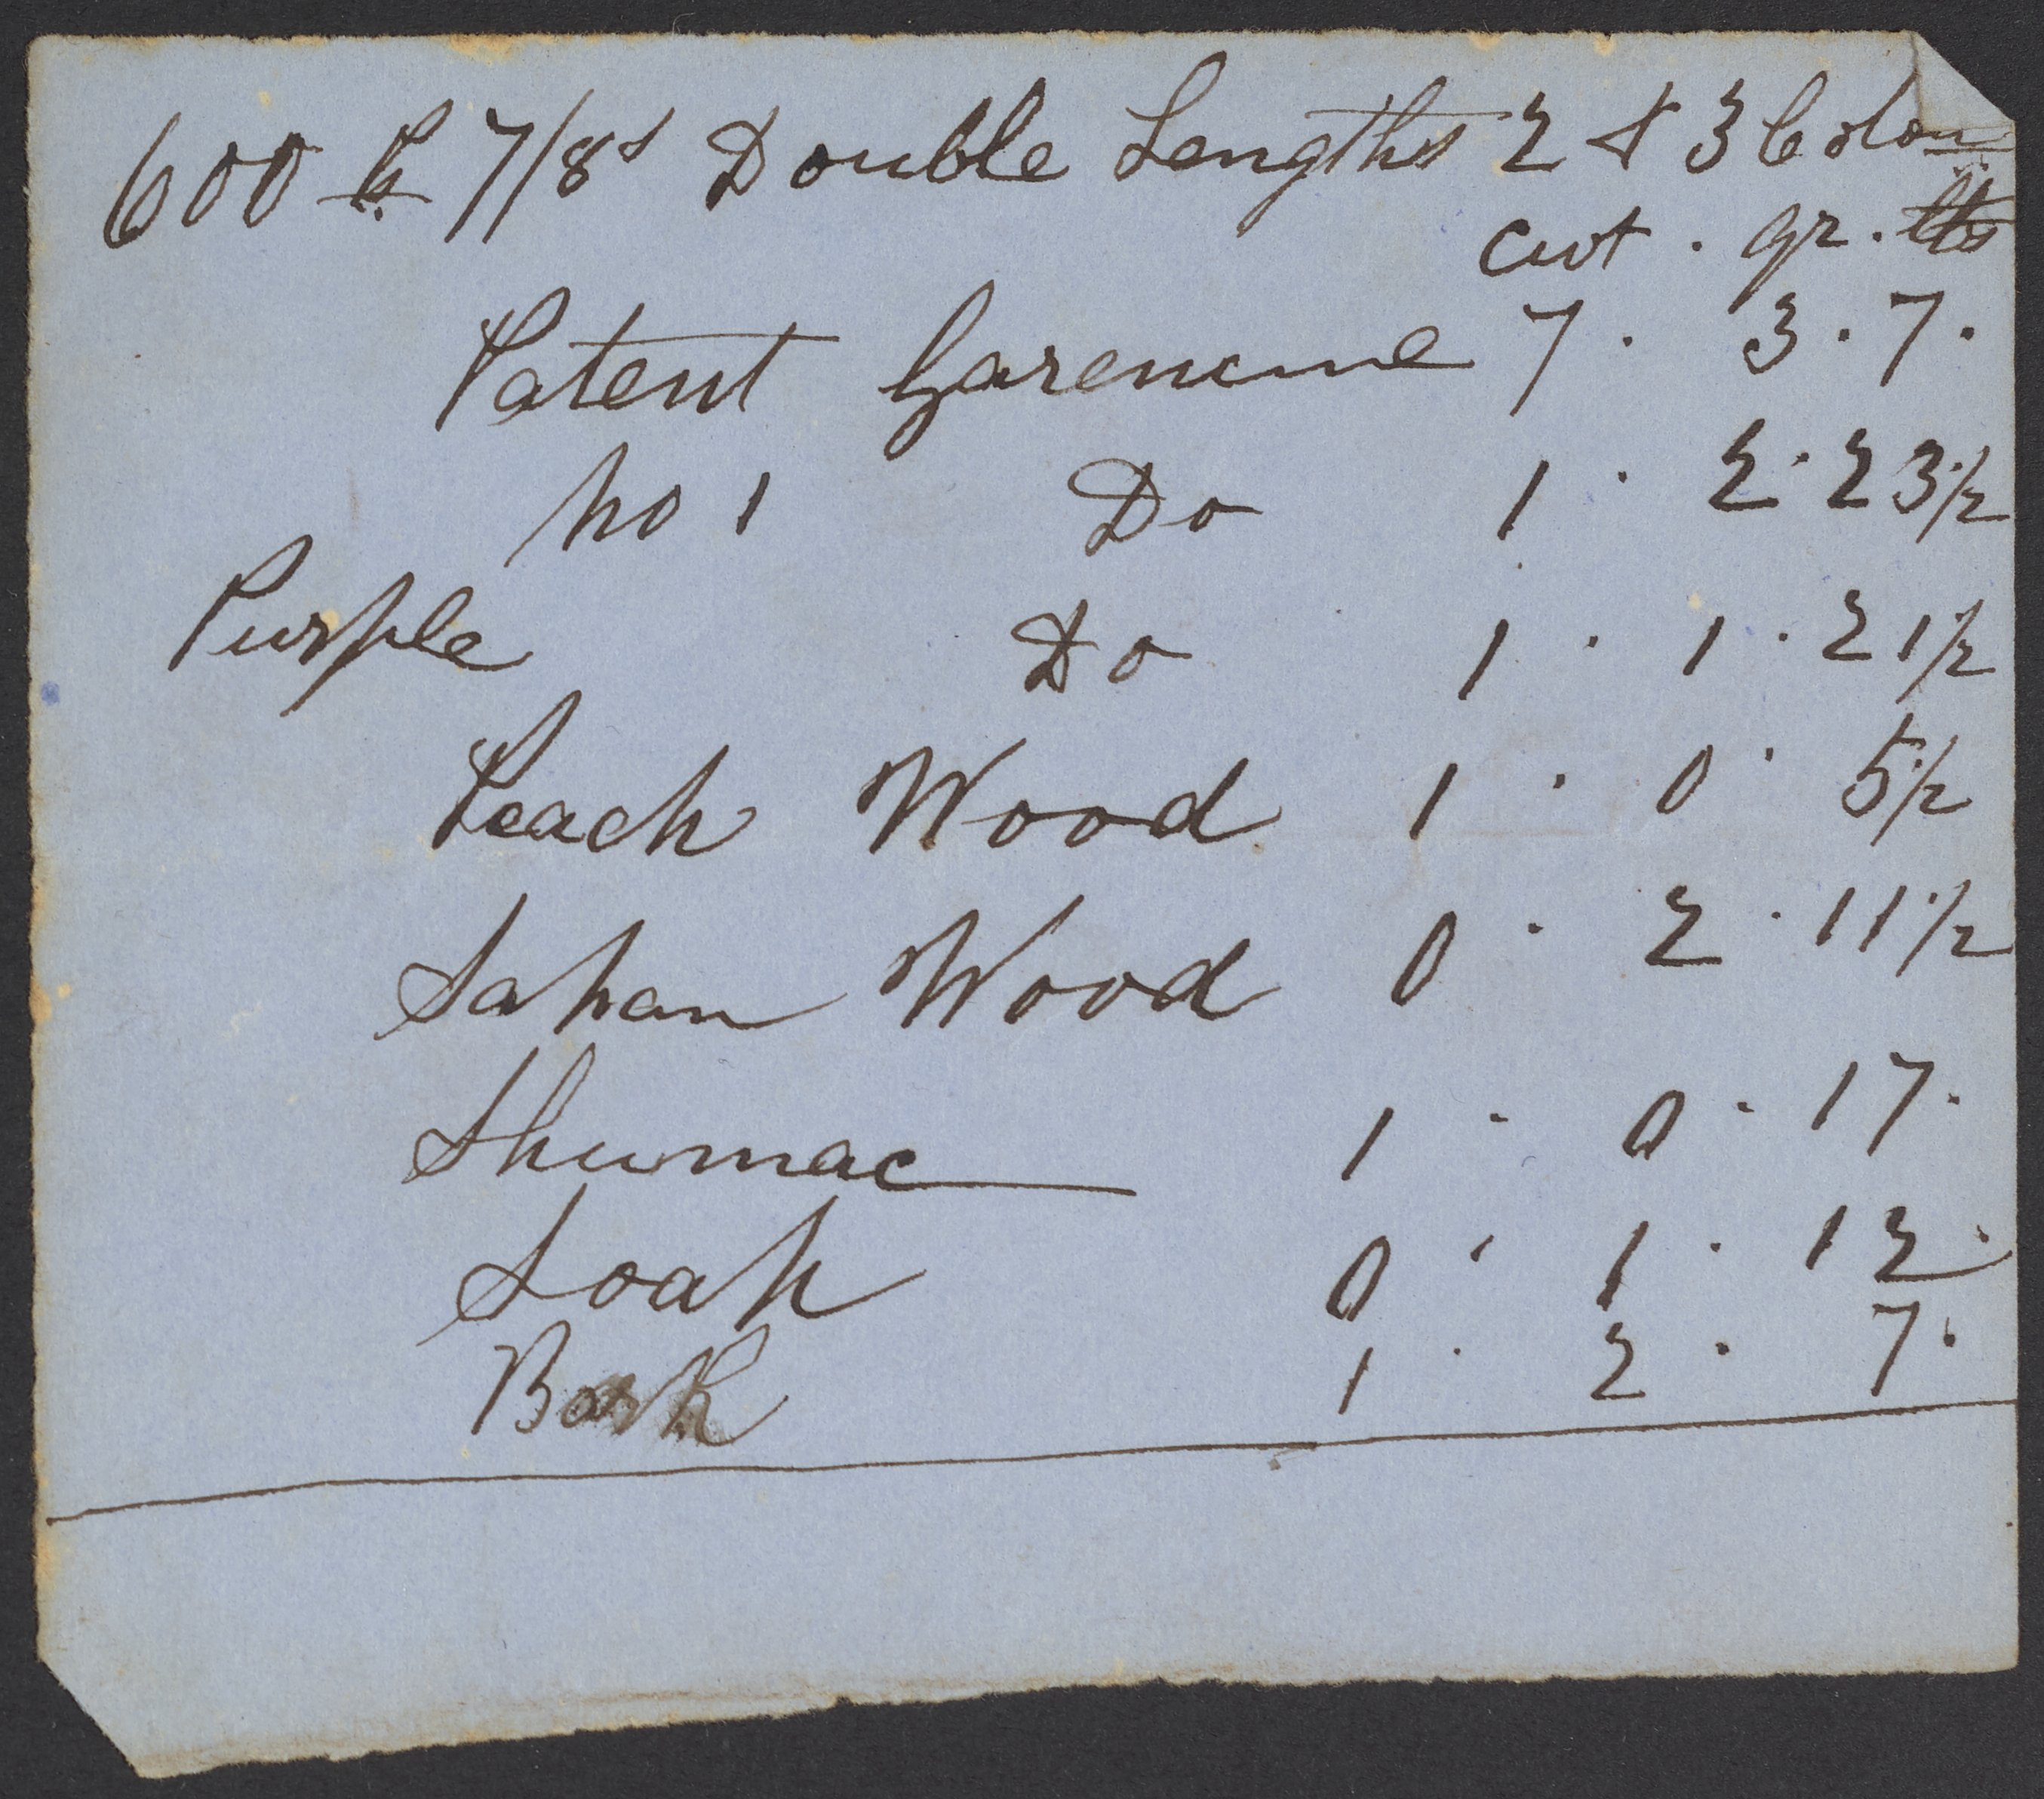 600 Ps 7/8s Double Lengths 2 & 3 Colour
cwt . qr . lbs
Patent Garencine 7 . 3 . 7 .
No 1 Do 1 . 2 . 23 1/2
Purple Do 1 . 1 . 21 1/2
Peach Wood 1 . 0 . 5 1/2
Sapan Wood 0 . 2 . 11 1/2
Shumac 1 . 0 . 17 .
Soap 0 . 1 . 12 .
Bark 1 . 2 . 7 .